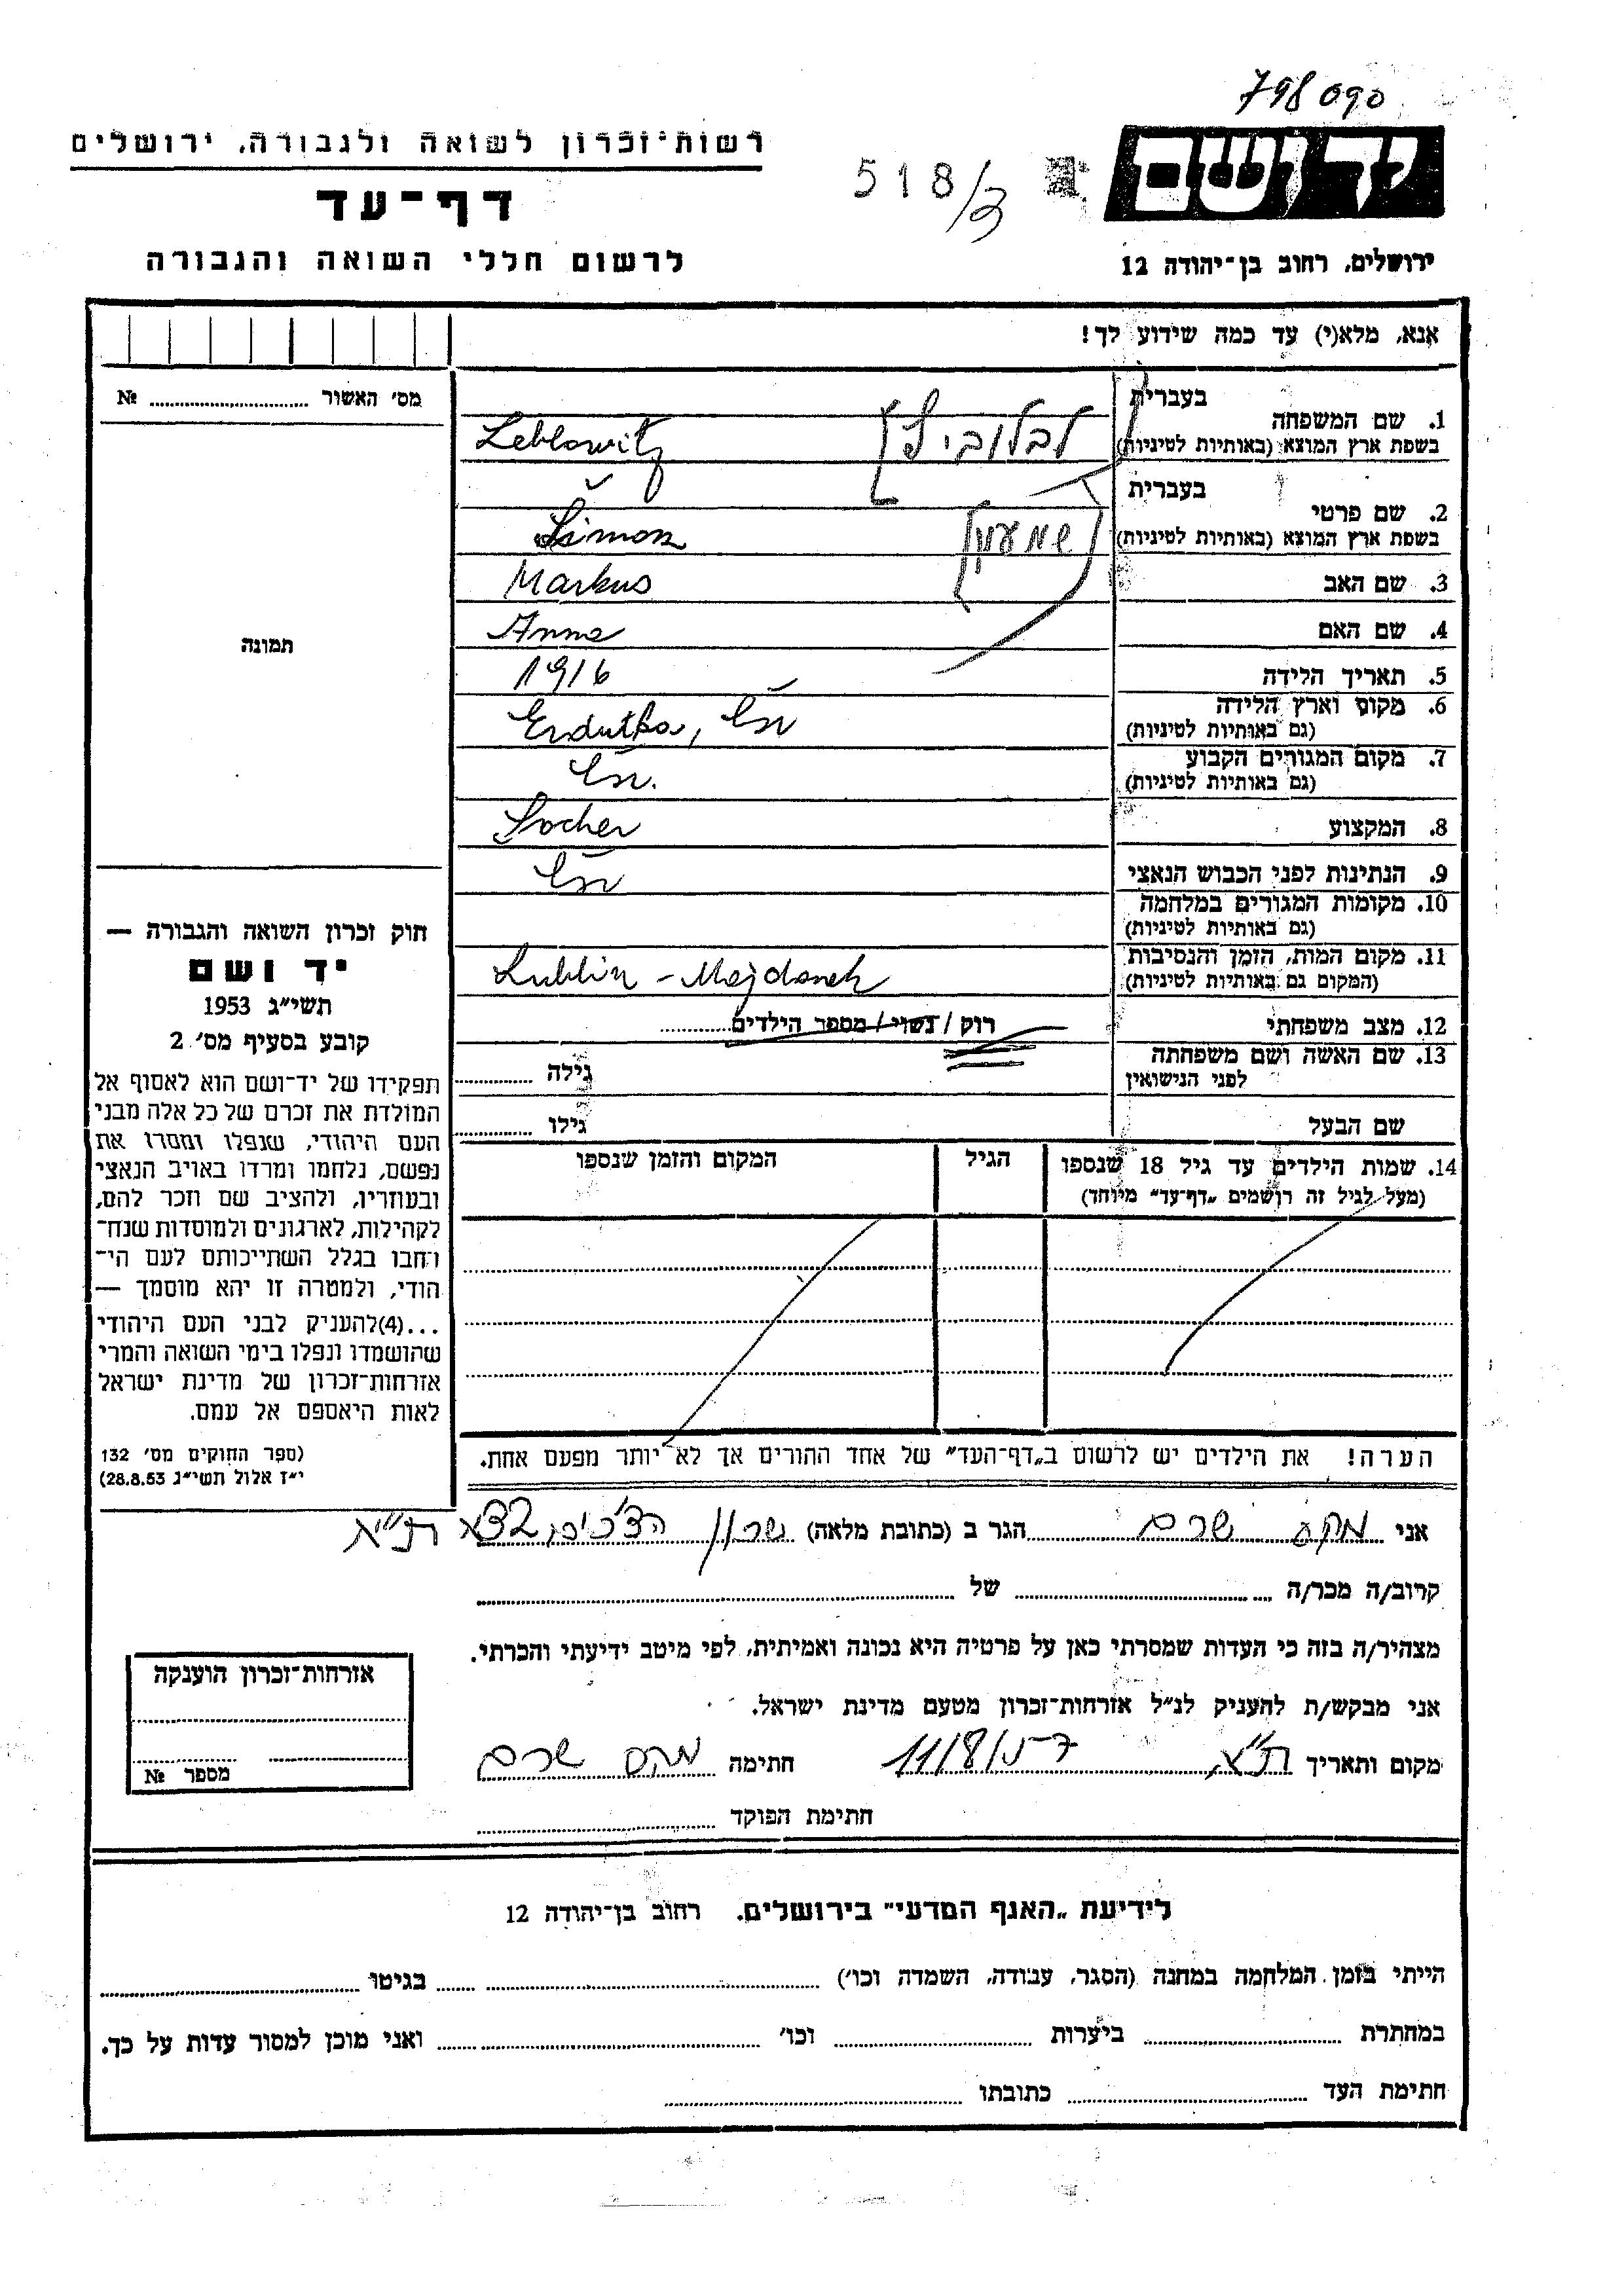 798090
רשות־זכרון לשואה ולגבורה, ירושלים
518/3
יד ושם
דף־עד
לרשום חללי השואה והגבורה
ירושלים, רחוב בן־יהודה 12
אנא, מלא(י) עד כמה שידוע לך!
מס׳ האשור № 
תמונה
1. שם המשפחה בעברית לבלוביץ
בשפת ארץ המוצא (באותיות לטיניות) Leblowitz
2. שם פרטי בעברית שמעון
בשפת ארץ המוצא (באותיות לטיניות) Šimon
3. שם האב Markus
4. שם האם Anna
5. תאריך הלידה 1916
6. מקום וארץ הלידה
(גם באותיות לטיניות) Erdutka, Čsr
7. מקום המגורים הקבוע
(גם באותיות לטיניות) Čsr.
8. המקצוע Socher
9. הנתינות לפני הכבוש הנאצי Čsr
10. מקומות המגורים במלחמה
(גם באותיות לטיניות)
11. מקום המות, הזמן והנסיבות
(המקום גם באותיות לטיניות) Lublin - Majdanek
12. מצב משפחתי רוק / נשוי / מספר הילדים
13. שם האשה ושם משפחתה
לפני הנישואין גילה
שם הבעל גילו
14. שמות הילדים עד גיל 18 שנספו הגיל המקום והזמן שנספו
(מעל לגיל זה רושמים „דף־עד״ מיוחד)
הערה! את הילדים יש לרשום ב„דף־העד״ של אחד ההורים אך לא יותר מפעם אחת.
חוק זכרון השואה והגבורה —
יד ושם
תשי״ג 1953
קובע בסעיף מס׳ 2
תפקידו של יד־ושם הוא לאסוף אל
המולדת את זכרם של כל אלה מבני
העם היהודי, שנפלו ומסרו את
נפשם, נלחמו ומרדו באויב הנאצי
ובעוזריו, ולהציב שם וזכר להם,
לקהילות, לארגונים ולמוסדות שנח־
רחבו בגלל השתייכותם לעם הי־
הודי, ולמטרה זו יהא מוסמך —
...(4)להעניק לבני העם היהודי
שהושמדו ונפלו בימי השואה והמרי
אזרחות־זכרון של מדינת ישראל
לאות היאספם אל עמם.
(ספר החוקים מס׳ 132
י״ז אלול תשי״ג 28.8.53)
אני מקס שרם הגר ב (כתובת מלאה) ת״א
קרוב/ה מכר/ה של
מצהיר/ה בזה כי העדות שמסרתי כאן על פרטיה היא נכונה ואמיתית, לפי מיטב ידיעתי והכרתי.
אני מבקש/ת להעניק לנ״ל אזרחות־זכרון מטעם מדינת ישראל.
מקום ותאריך ת״א חתימה מקס שרם
חתימת הפוקד
אזרחות־זכרון הוענקה
מספר №
לידיעת „האגף המדעי״ בירושלים, רחוב בן־יהודה 12
הייתי בזמן המלחמה במחנה (הסגר, עבודה, השמדה וכו׳) בגיטו
במחתרת ביערות וכו׳ ואני מוכן למסור עדות על כך.
חתימת העד כתובתו